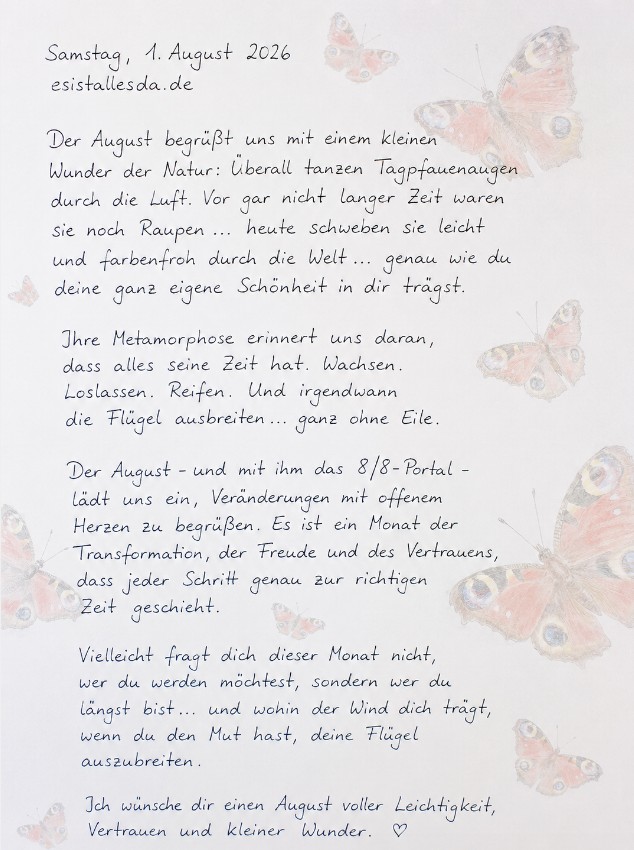 Samstag, 1. August 2026
esistallesda.de
Der August begrüßt uns mit einem kleinen
Wunder der Natur: Überall tanzen Tagpfauenaugen
durch die Luft. Vor gar nicht langer Zeit waren
sie noch Raupen ... heute schweben sie leicht
und farbenfroh durch die Welt ... genau wie du
deine ganz eigene Schönheit in dir trägst.
Ihre Metamorphose erinnert uns daran,
dass alles seine Zeit hat. Wachsen.
Loslassen. Reifen. Und irgendwann
die Flügel ausbreiten ... ganz ohne Eile.
Der August - und mit ihm das 8/8-Portal -
lädt uns ein, Veränderungen mit offenem
Herzen zu begrüßen. Es ist ein Monat der
Transformation, der Freude und des Vertrauens,
dass jeder Schritt genau zur richtigen
Zeit geschieht.
Vielleicht fragt dich dieser Monat nicht,
wer du werden möchtest, sondern wer du
längst bist ... und wohin der Wind dich trägt,
wenn du den Mut hast, deine Flügel
auszubreiten.
Ich wünsche dir einen August voller Leichtigkeit,
Vertrauen und kleiner Wunder. ♡